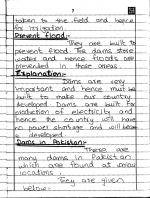 7
taken to the field and hence
for irrigation.
Prevent flood:-
They are built to
prevent flood. The dams store
water and hence floods are
prevented in these areas.
Explanation:-
Dams are very
important and hence must be
built to make our country
developed. Dams are built for
production of electricity and
hence the country will have
no power shortage and will become
a developed.
Dams in Pakistan:-
There are
many dams in Pakistan
which are found at various
locations.
They are given
below:-